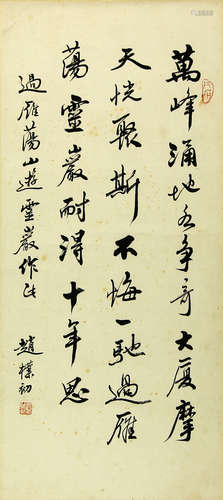 萬峰涌地各爭奇大廈摩
天恍聚斯不悔一馳過雁
蕩靈巖耐得十年思
過雁蕩山遊靈巖作此
趙樸初